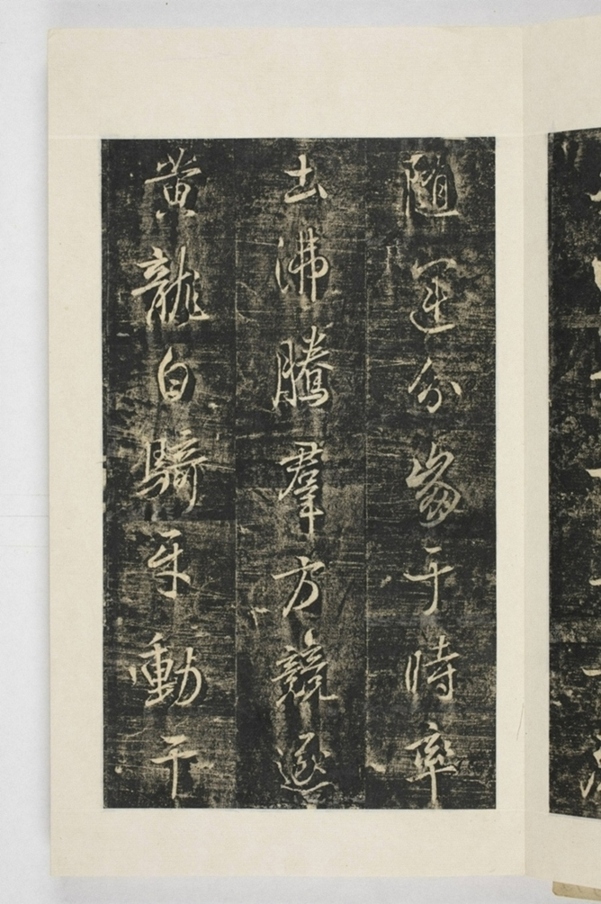 隨運分崩于時率
土沸騰羣方競逐
黃龍白騎互動干